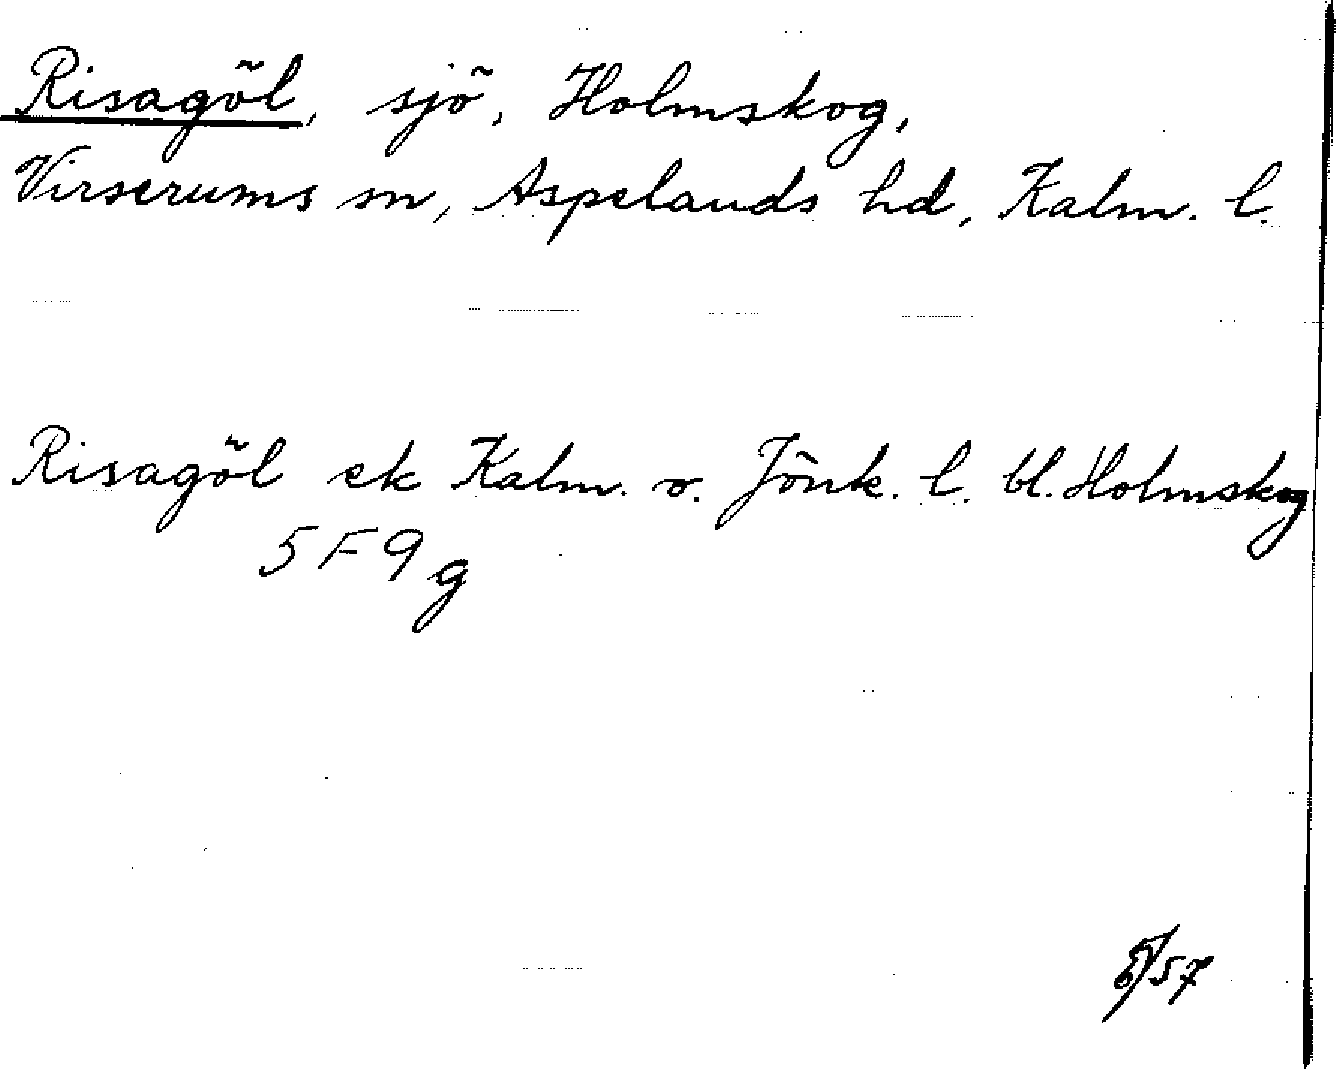 Risagöl, sjö, Holmskog,
Virserums sn, Aspelands hd, Kalm. l.
Risagöl ek Kalm. o. Jönk. l. bl. Holmskog
5F9g
/57